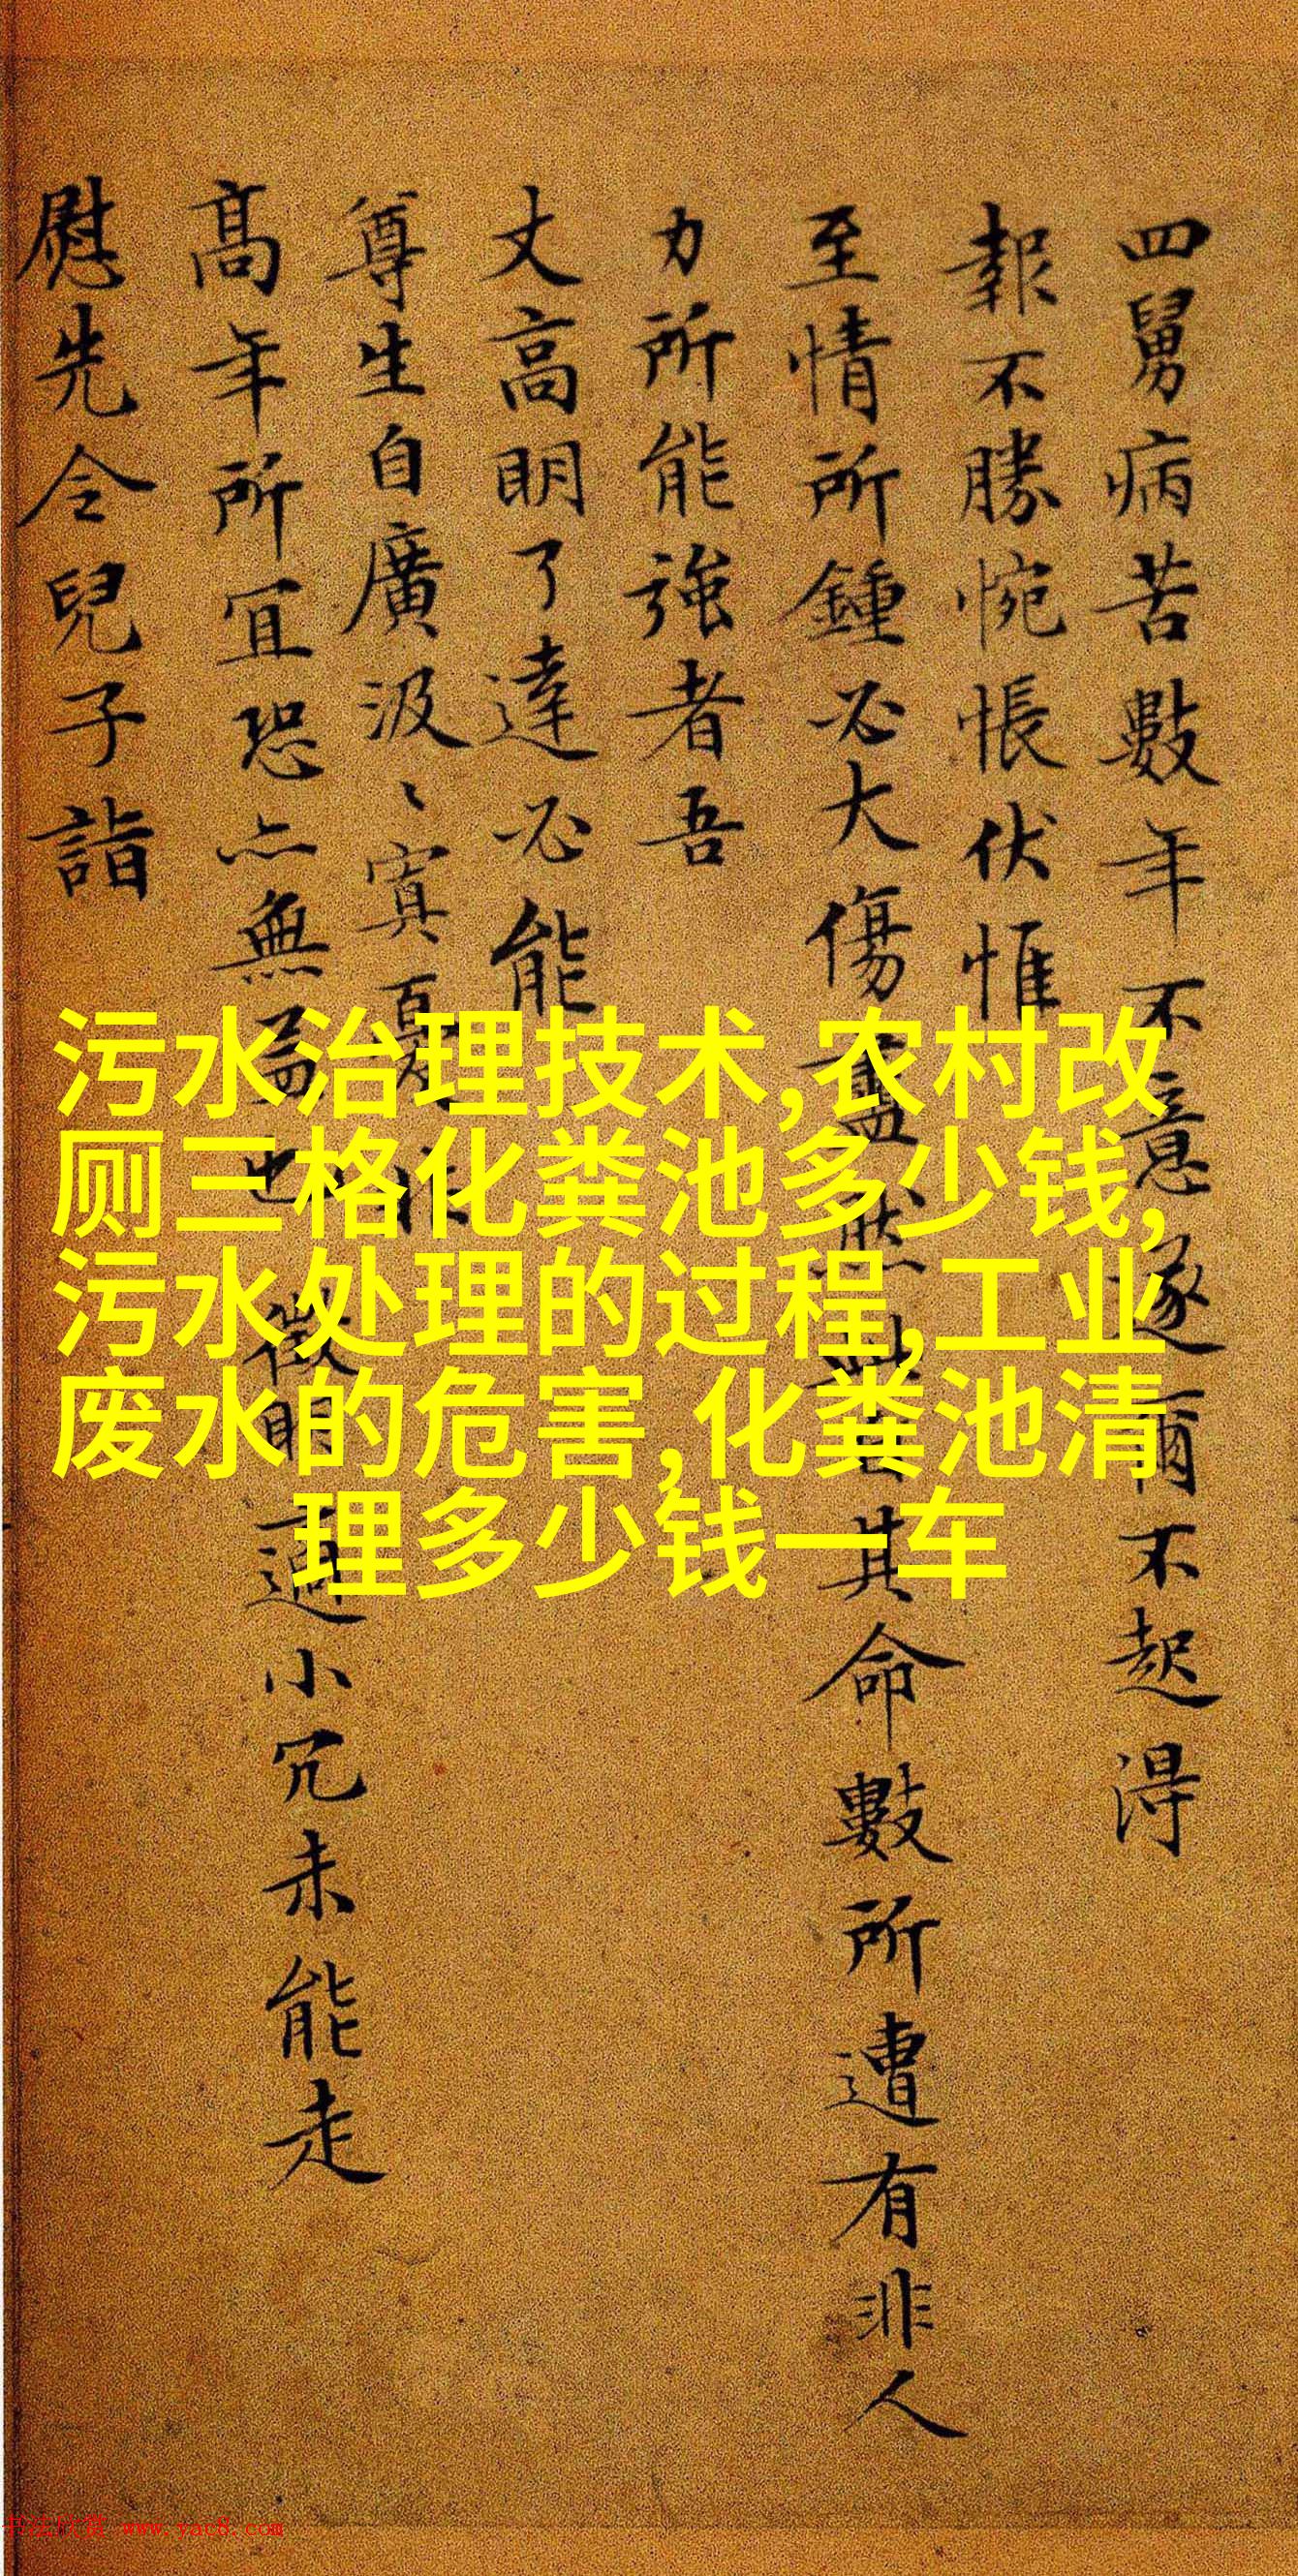 四舅病苦數年不意遂爾不起得
報不勝惋悵伏惟
至情所鍾必大傷然其命數所遭有非人
力所能強者吾
丈高明了達必能
尊生自廣汲〻
高年所宜恐亦無益也小冗未能走
慰先令兒子詣
污水治理技术,农村改
厕三格化粪池多少钱,
污水处理的过程,工业
废水的危害,化粪池清
理多少钱一车
书法欣赏 www.yac8.com